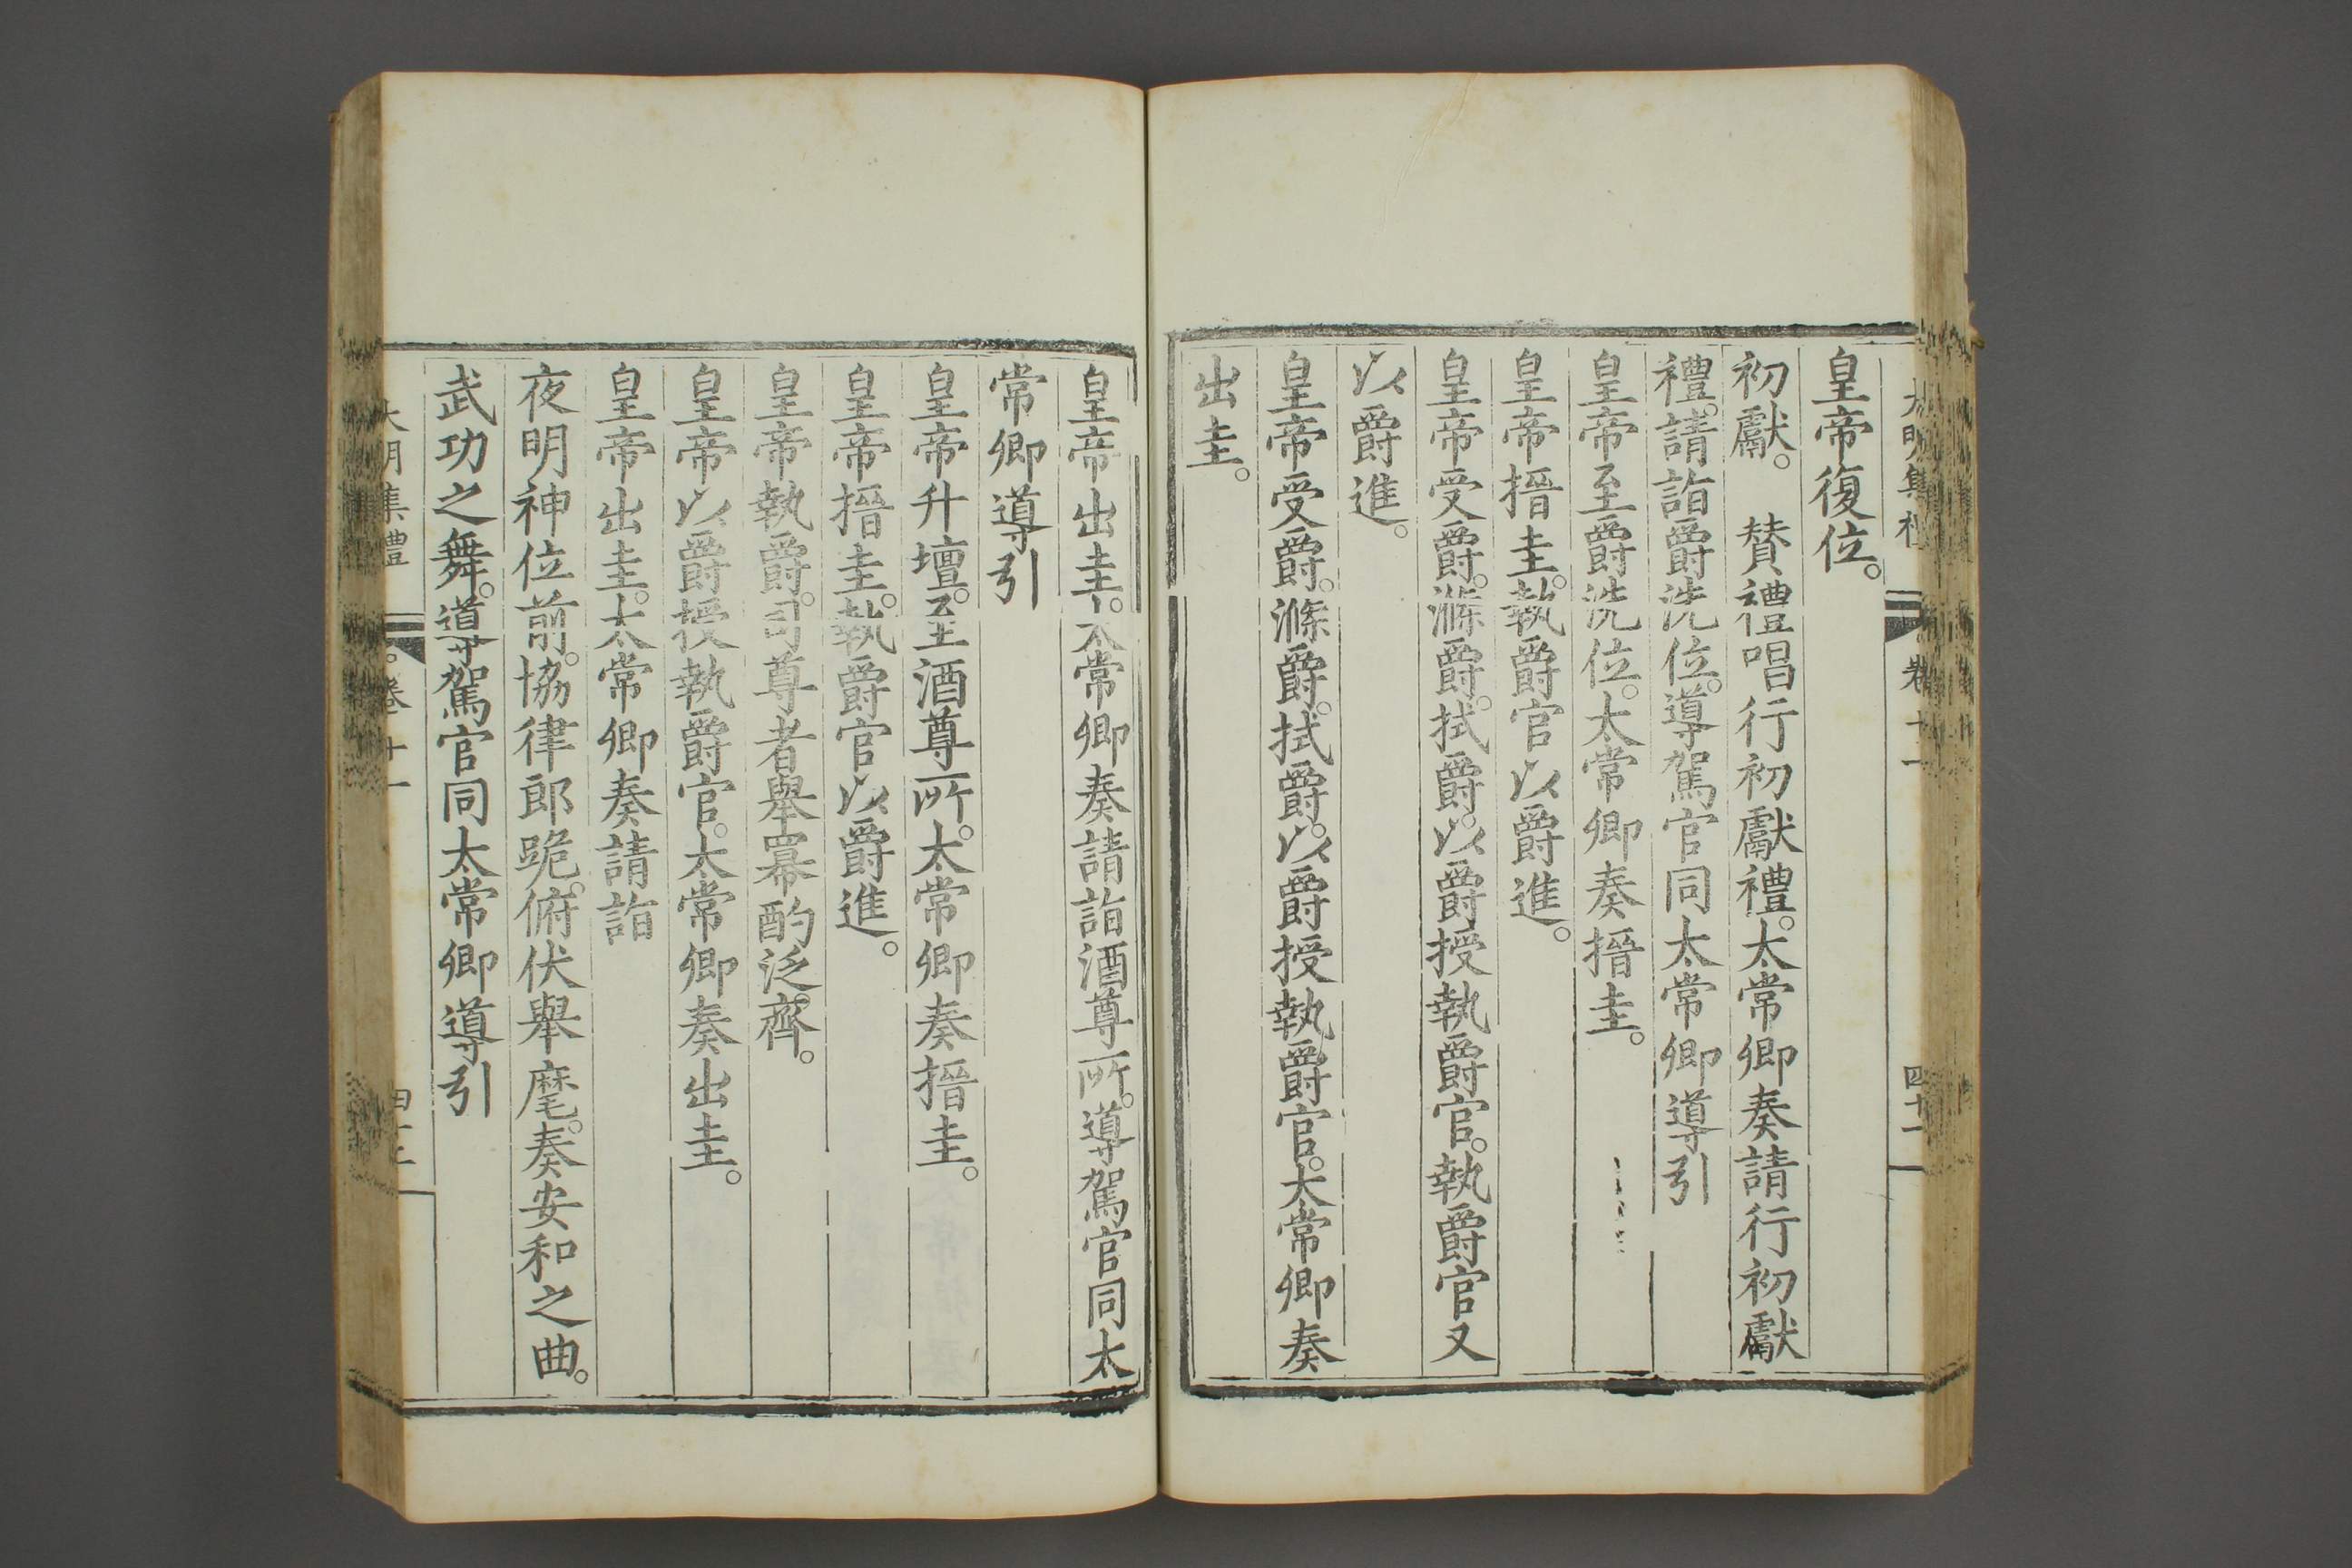 皇帝復位。
初獻。　贊禮唱行初獻禮。太常卿奏請行初獻
禮。請詣爵洗位。導駕官同太常卿導引
皇帝至爵洗位。太常卿奏搢圭。
皇帝搢圭。執爵官以爵進。
皇帝受爵。滌爵。拭爵。以爵授執爵官。執爵官又
以爵進。
皇帝受爵。滌爵。拭爵。以爵授執爵官。太常卿奏
出圭。
皇帝出圭。太常卿奏請詣酒尊所。導駕官同太
常卿導引
皇帝升壇。至酒尊所。太常卿奏搢圭。
皇帝搢圭。執爵官以爵進。
皇帝執爵。司尊者舉冪酌泛齊。
皇帝以爵授執爵官。太常卿奏出圭。
皇帝出圭。太常卿奏請詣
夜明神位前。協律郎跪。俯伏舉麾。奏安和之曲。
武功之舞。導駕官同太常卿導引
大明集禮　卷十一